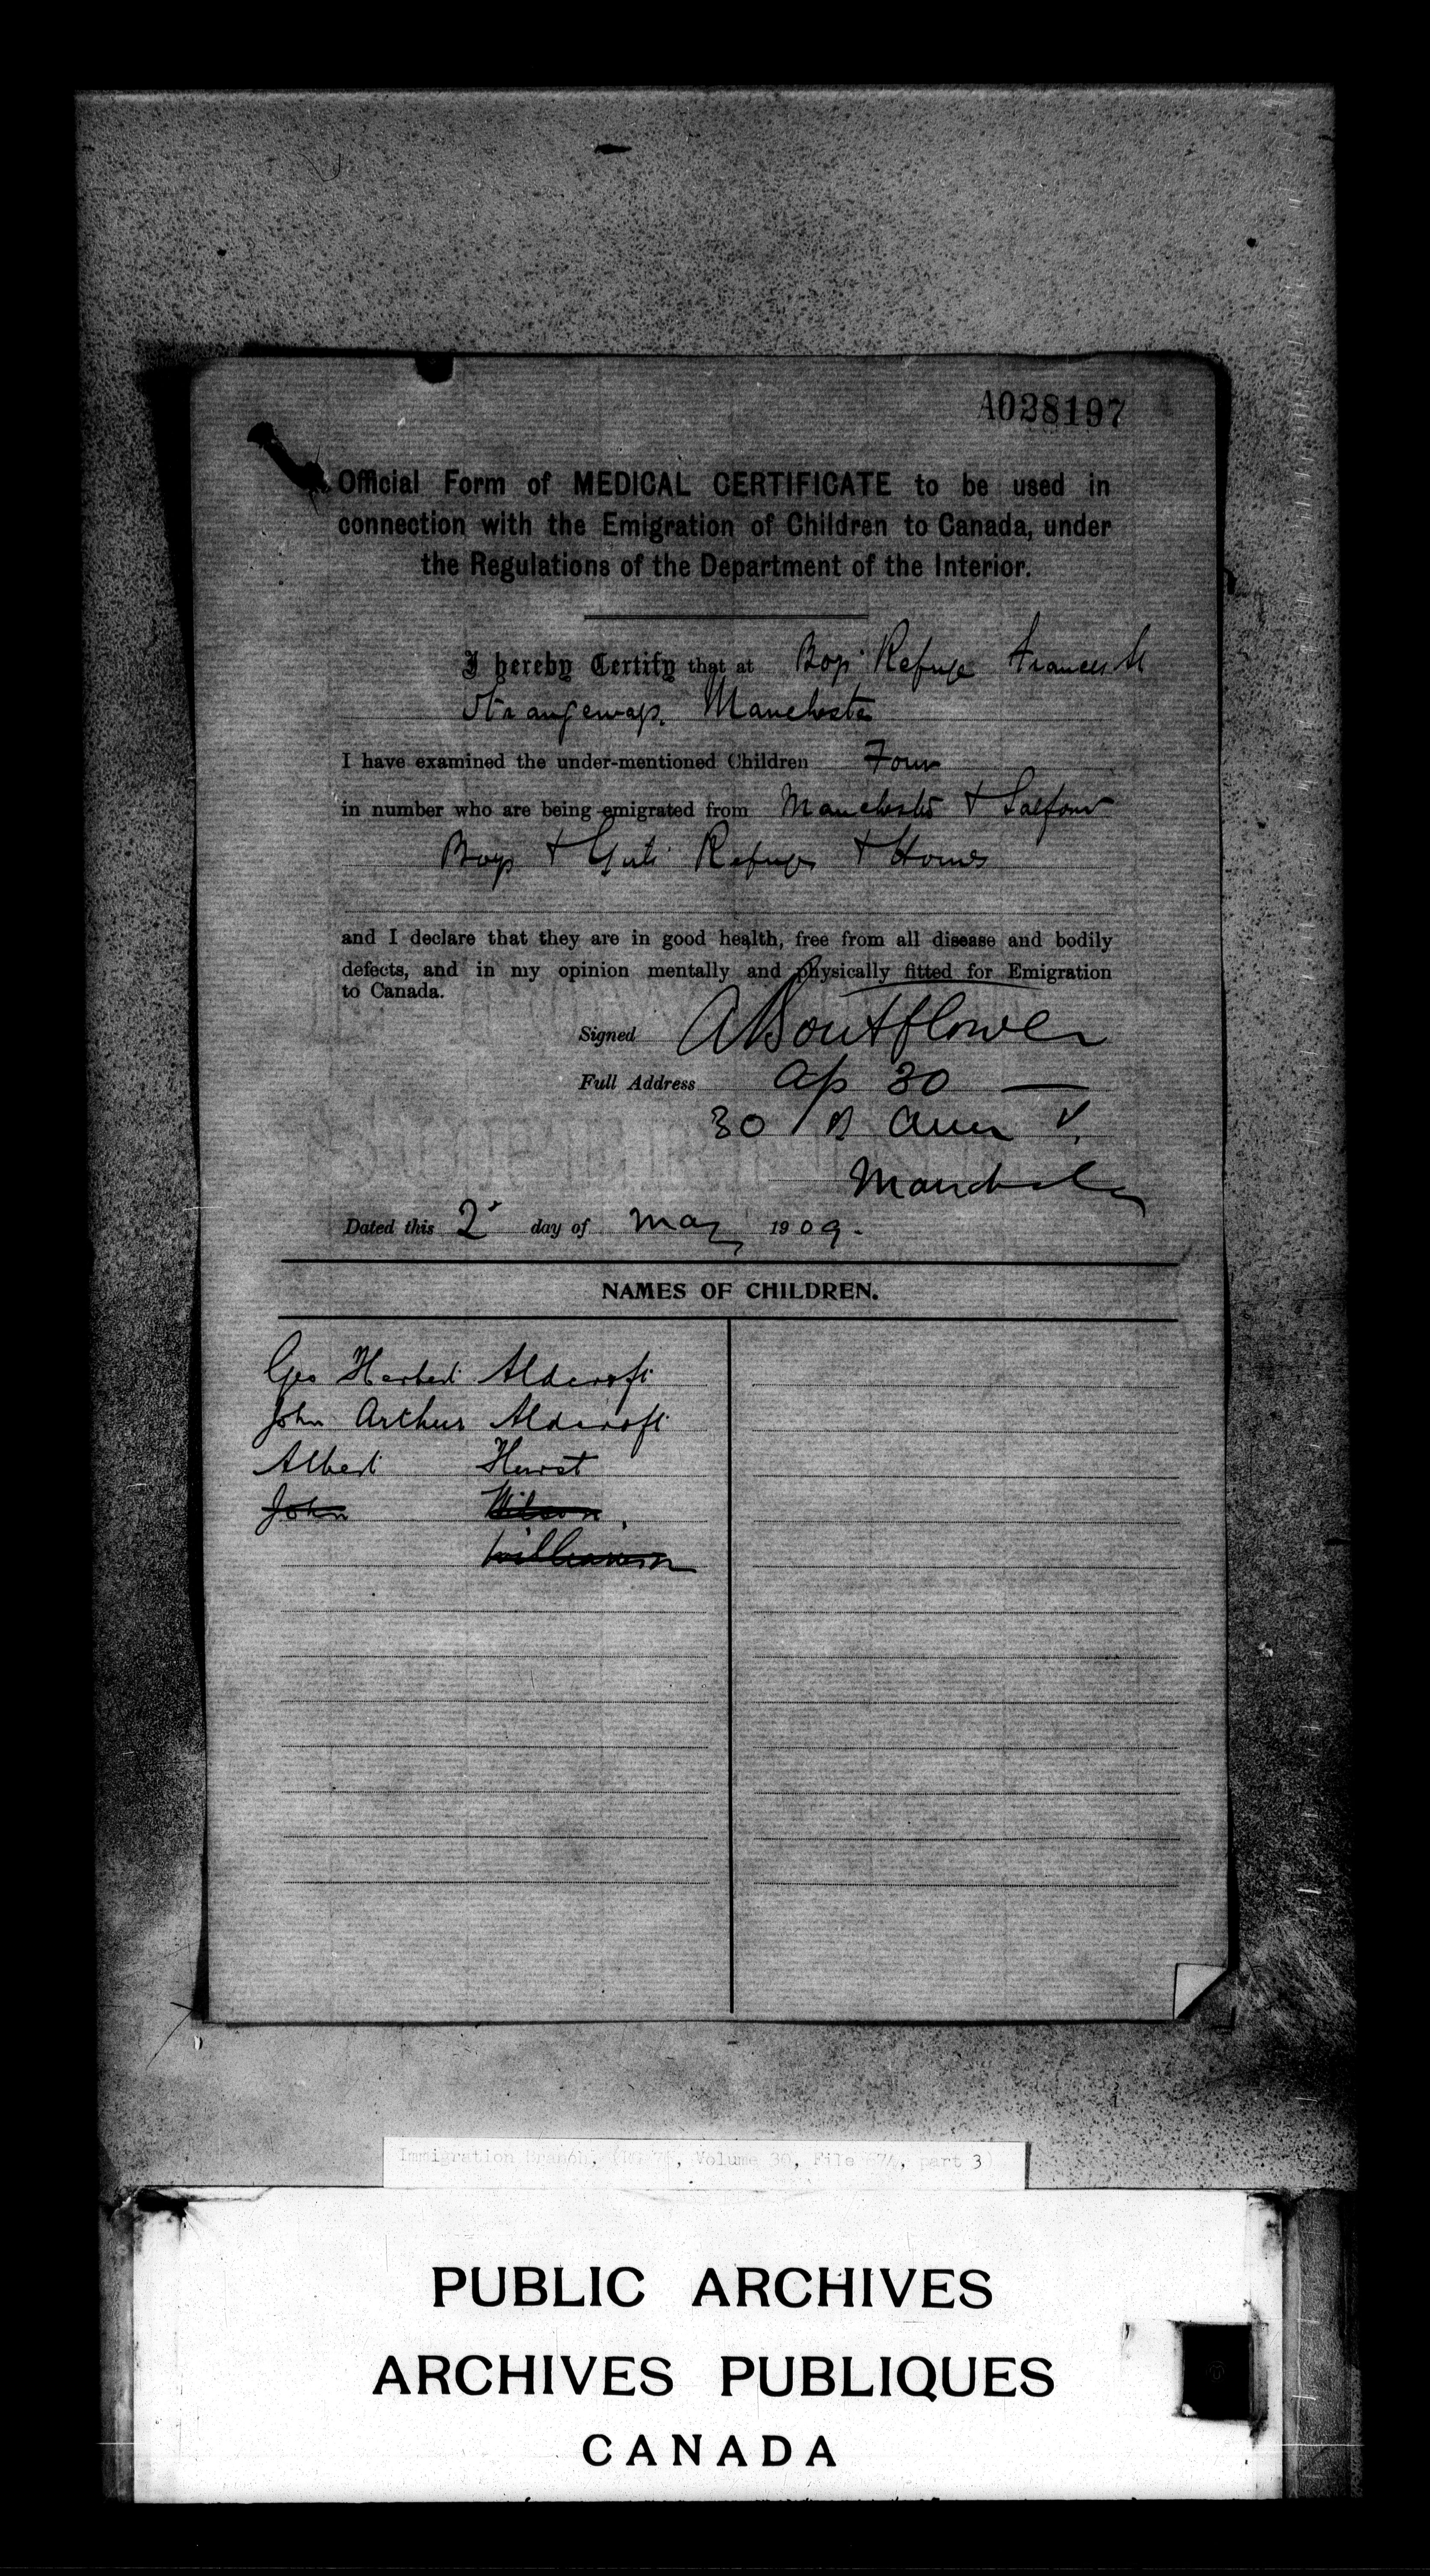 A028197
Official Form of MEDICAL CERTIFICATE to be used in
connection with the Emigration of Children to Canada, under
the Regulations of the Department of the Interior.
I hereby Certify that at Boys Refuge Frances St
Strangeways. Manchester
I have examined the under-mentioned Children Four
in number who are being emigrated from Manchester & Salford
Boys & Girls Refuges & Homes
and I declare that they are in good health, free from all disease and bodily
defects, and in my opinion mentally and physically fitted for Emigration
to Canada.
Signed A Boutflower
Full Address 30
30
Manchester
Dated this 2 day of May 1909.
NAMES OF CHILDREN.
Geo Herbert Aldcroft
John Arthur Aldcroft
Albert Hurst
John Wilson
Williamson
Immigration Branch, (RG 76, Volume 30, File 674, part 3)
PUBLIC ARCHIVES
ARCHIVES PUBLIQUES
CANADA